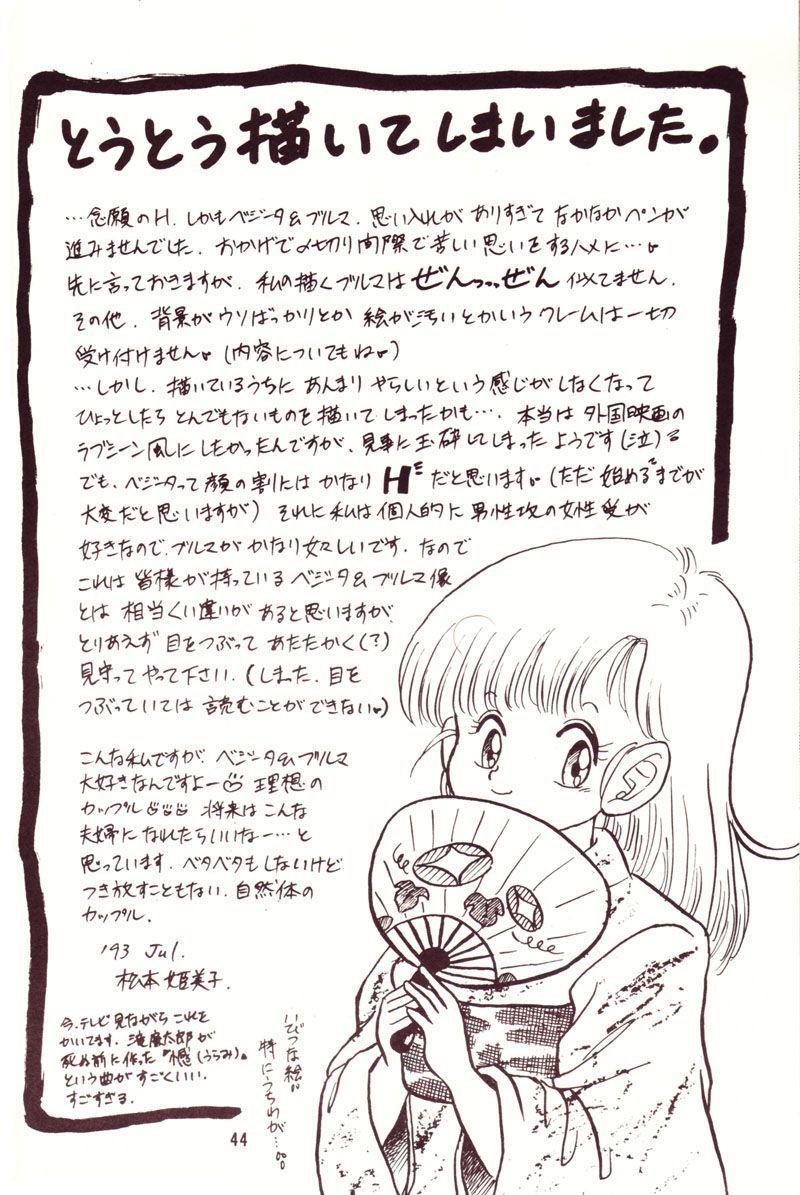 とうとう描いてしまいました。
…念願のH. しかもベジータ&ブルマ. 思い入れが ありすぎて なかなかペンが
進みませんでした. おかげで〆切り間際で苦しい思いをするハメに…。
先に言っておきますが. 私の描くブルマは ぜんっっぜん 似てません.
その他. 背景がウソばっかりとか 絵が汚いとかいう クレームは一切
受け付けません。(内容についてもね。)
…しかし. 描いているうちに あんまり やらしいという感じがしなくなって
ひょっとしたら とんでもないものを描いてしまったかも…. 本当は 外国映画の
ラブシーン風にしたかったんですが、見事に玉砕してしまったようです(泣)
でも、ベジータって顔の割には かなり H だと思います。(ただ "始める"までが
大変だと思いますが) それに私は個人的に 男性攻の女性受が
好きなので、ブルマが かなり女々しいです. なので
これは 皆様が持っている ベジータ&ブルマ像
とは 相当くい違いが あると思いますが.
とりあえず 目をつぶって あたたかく(?)
見守ってやって下さい. (しまった. 目を
つぶっていては 読むことができない。)
こんな私ですが、ベジータ&ブルマ
大好きなんですよー 理想の
カップル 将来は こんな
夫婦に なれたらいいなー…と
思っています. ベタベタもしないけど
つき放すこともない. 自然体の
カップル.
'93 Jul.
松本姫美子.
今、テレビ見ながら これを
かいてます. 滝廉太郎が
死ぬ前に作った『憾(うらみ)』
という曲がすごくいい.
すごすぎる.
いびつな絵…
特にうちわが…。。
44